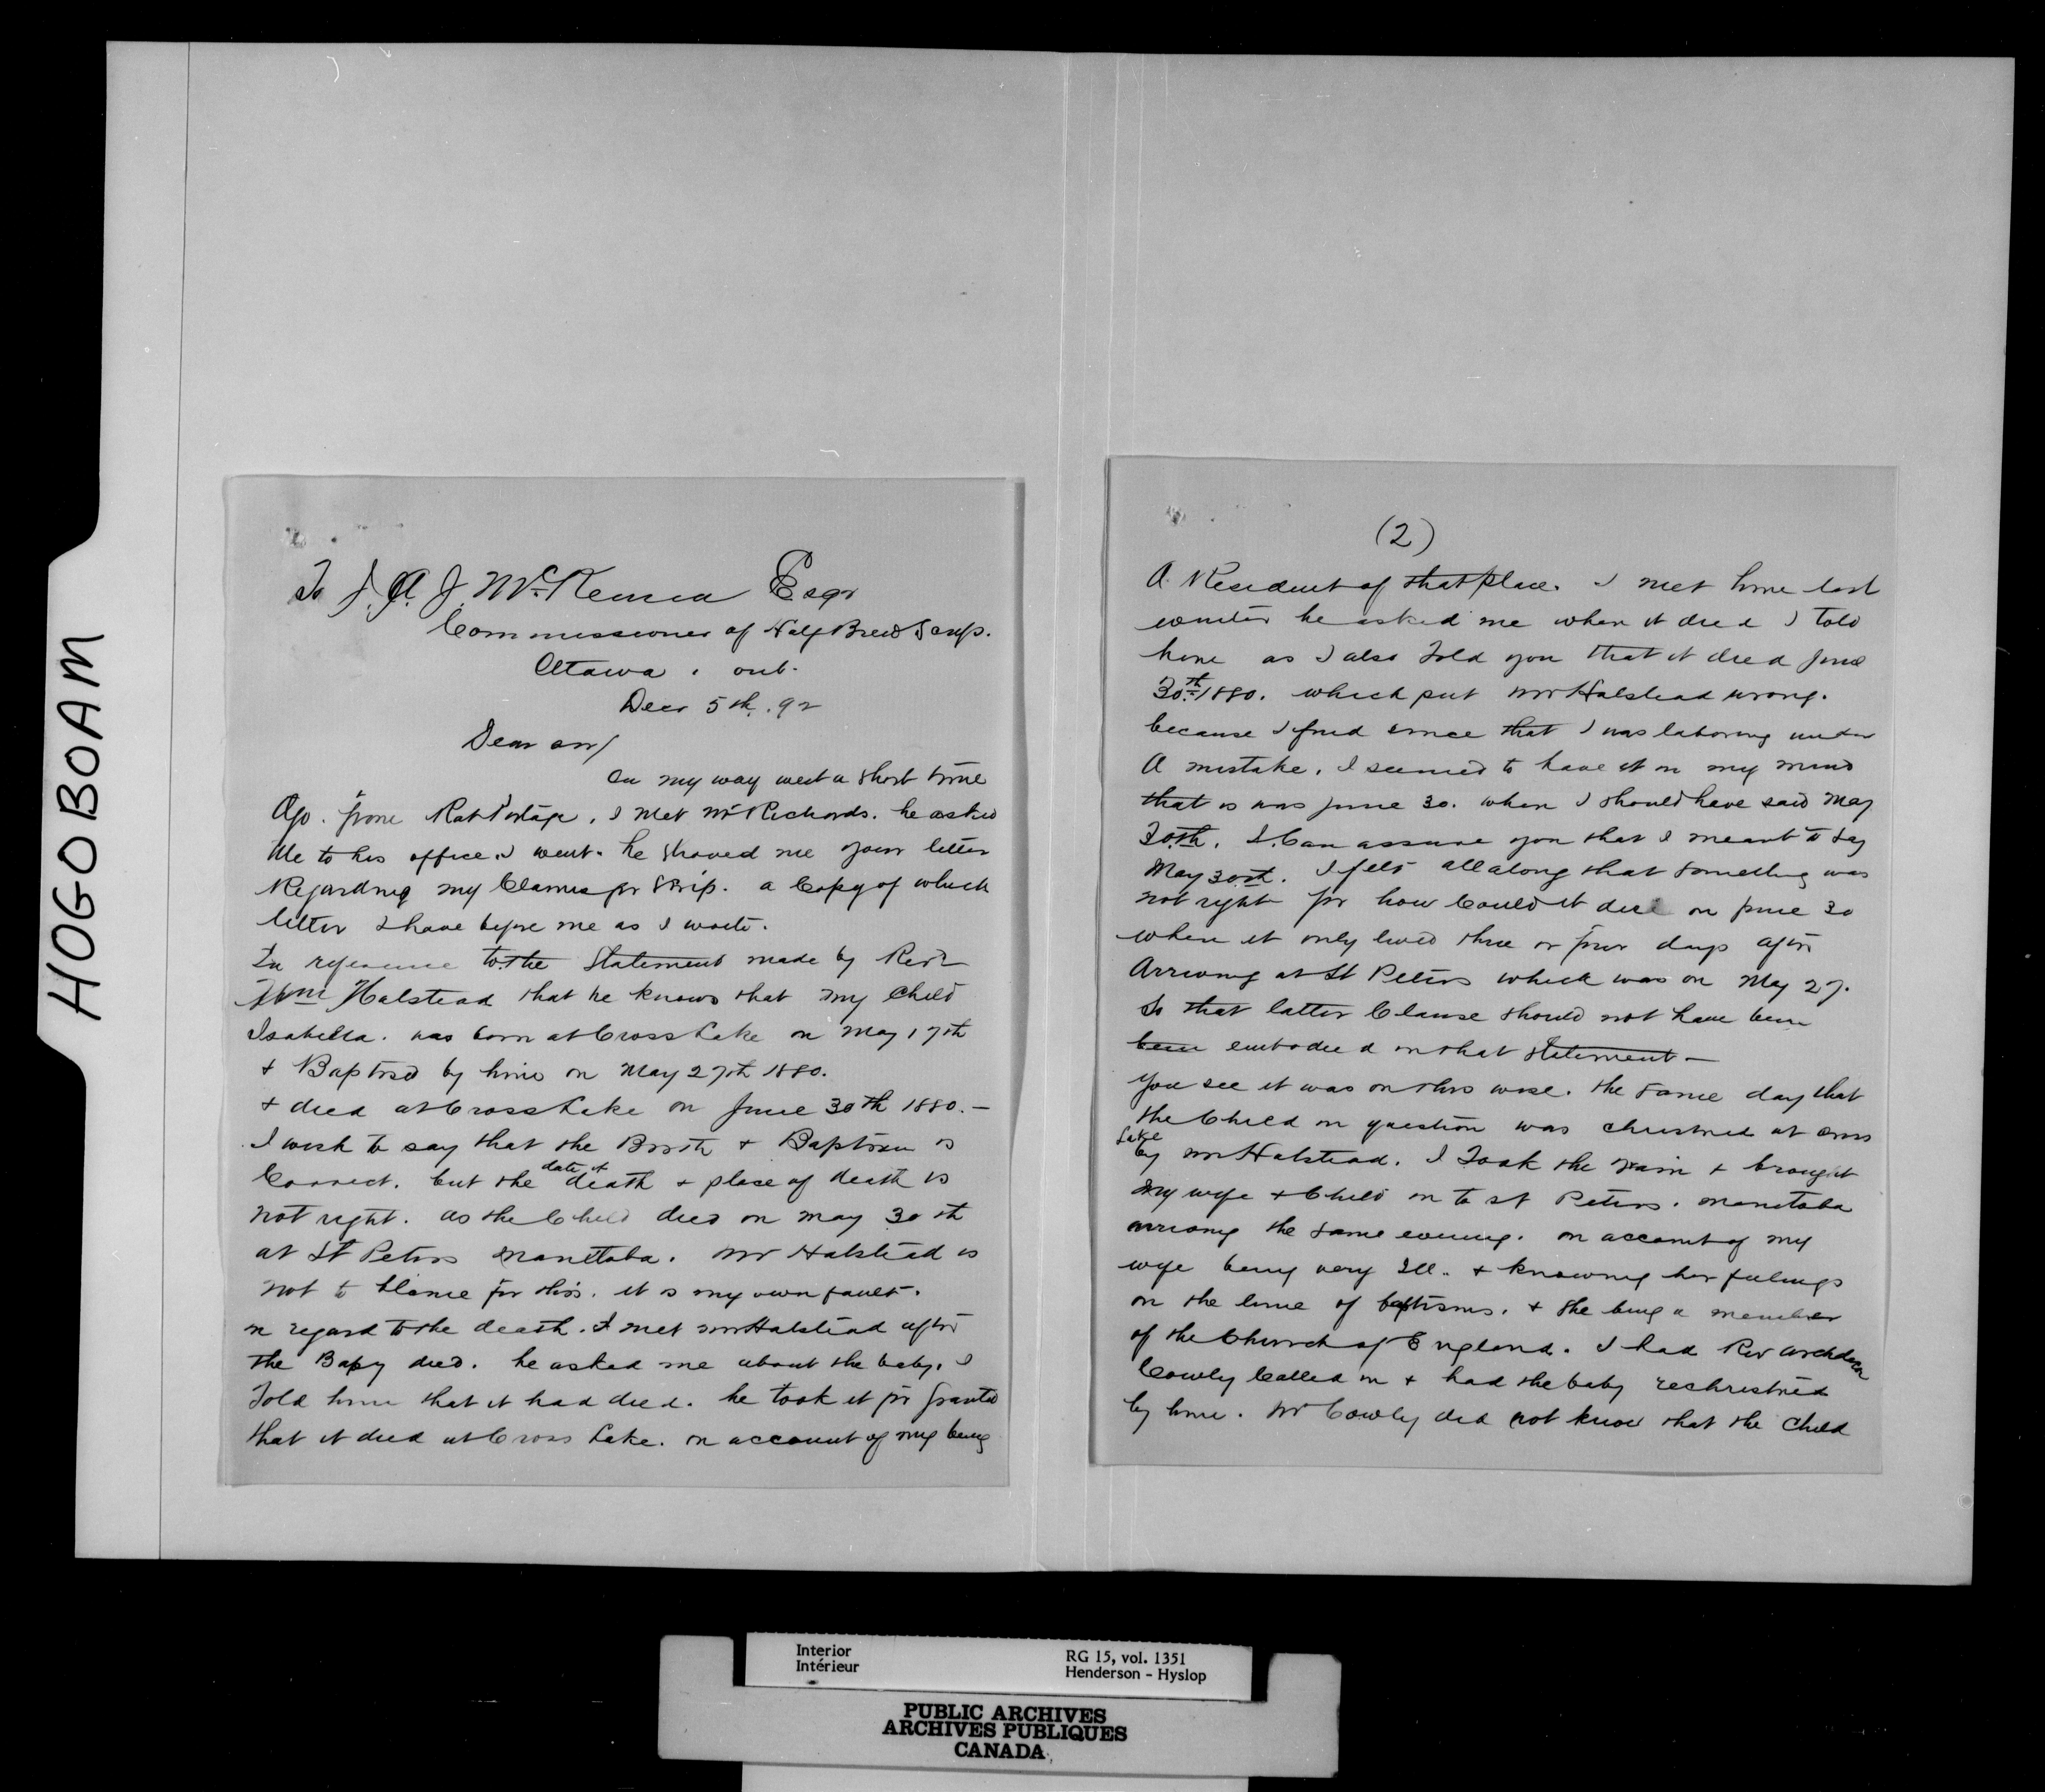 HOGOBOAM
To J. A. J. McKenna Esqr
Commissioner of Half Breed Scrip.
Ottawa. ont.
Decr 5th. 92
Dear sir/
On my way west a short time
Ago. from Rat Portage, I met Mr Richards. he asked
Me to his office. I went. he showed me your letter
Regarding my Claims for Scrip. a Copy of which
letter I have before me as I write.
In reference to the Statement made by Revd
Wm Halstead that he knows that my Child
Isabella. was born at Cross Lake on May 17th
+ Baptised by him on May 27th 1880.
+ died at Cross Lake on June 30th 1880.—
I wish to say that the Birth + Baptism is
Correct. but the date of death + place of death is
not right. as the Child died on may 30th
at St Peters Manitoba. Mr Halstead is
not to blame for this. it is my own fault.
in regard to the death. I met mr Halstead after
the Baby died. he asked me about the baby. I
Told him that it had died. he took it for granted
that it died at Cross Lake. on account of my being
(2)
A Resident of that place. I met him last
winter he asked me when it died I told
him as I also Told you that it died June
30th 1880. which put mr Halstead wrong.
because I find since that I was laboring under
A mistake. I seemed to have it in my mind
that is was June 30. when I should have said May
30th. I Can assure you that I meant to say
May 30th. I felt all along that something was
not right for how Could it die on June 30
when it only lived three or four days after
Arriving at St Peters which was on May 27.
So that latter Clause should not have been
been embodied in that statement—
You see it was on this wise. the same day that
the Child in question was christned at cross
Lake
by mr Halstead. I Took the train + brought
My wife + Child in to St Peters. manitoba
arriving the same evening. on account of my
wife being very Ill. + knowing her feelings
on the line of baptisms. + she being a member
of the Church of England. I had Rev archdeacon
Cowly Called in + had the baby rechristned
by him. Mr Cowly did not know that the Child
Interior
Intérieur
RG 15, vol. 1351
Henderson - Hyslop
PUBLIC ARCHIVES
ARCHIVES PUBLIQUES
CANADA